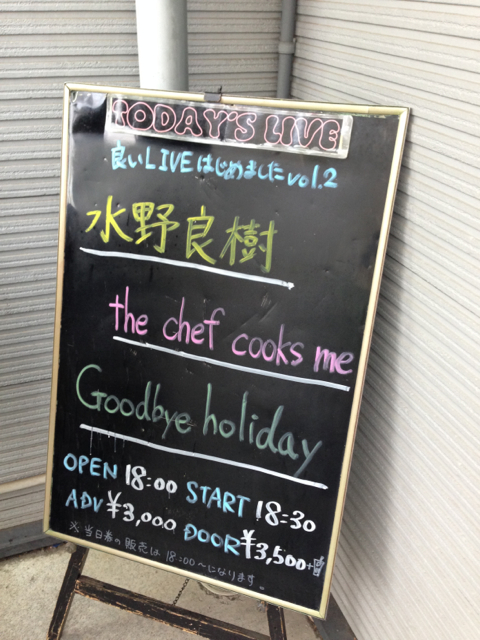 TODAY'S LIVE
良いLIVEはじめましたvol.2
水野良樹
the chef cooks me
Goodbye holiday
OPEN 18:00 START 18:30
ADV ¥3,000 DOOR ¥3,500+
※当日券の販売は18:00〜になります。